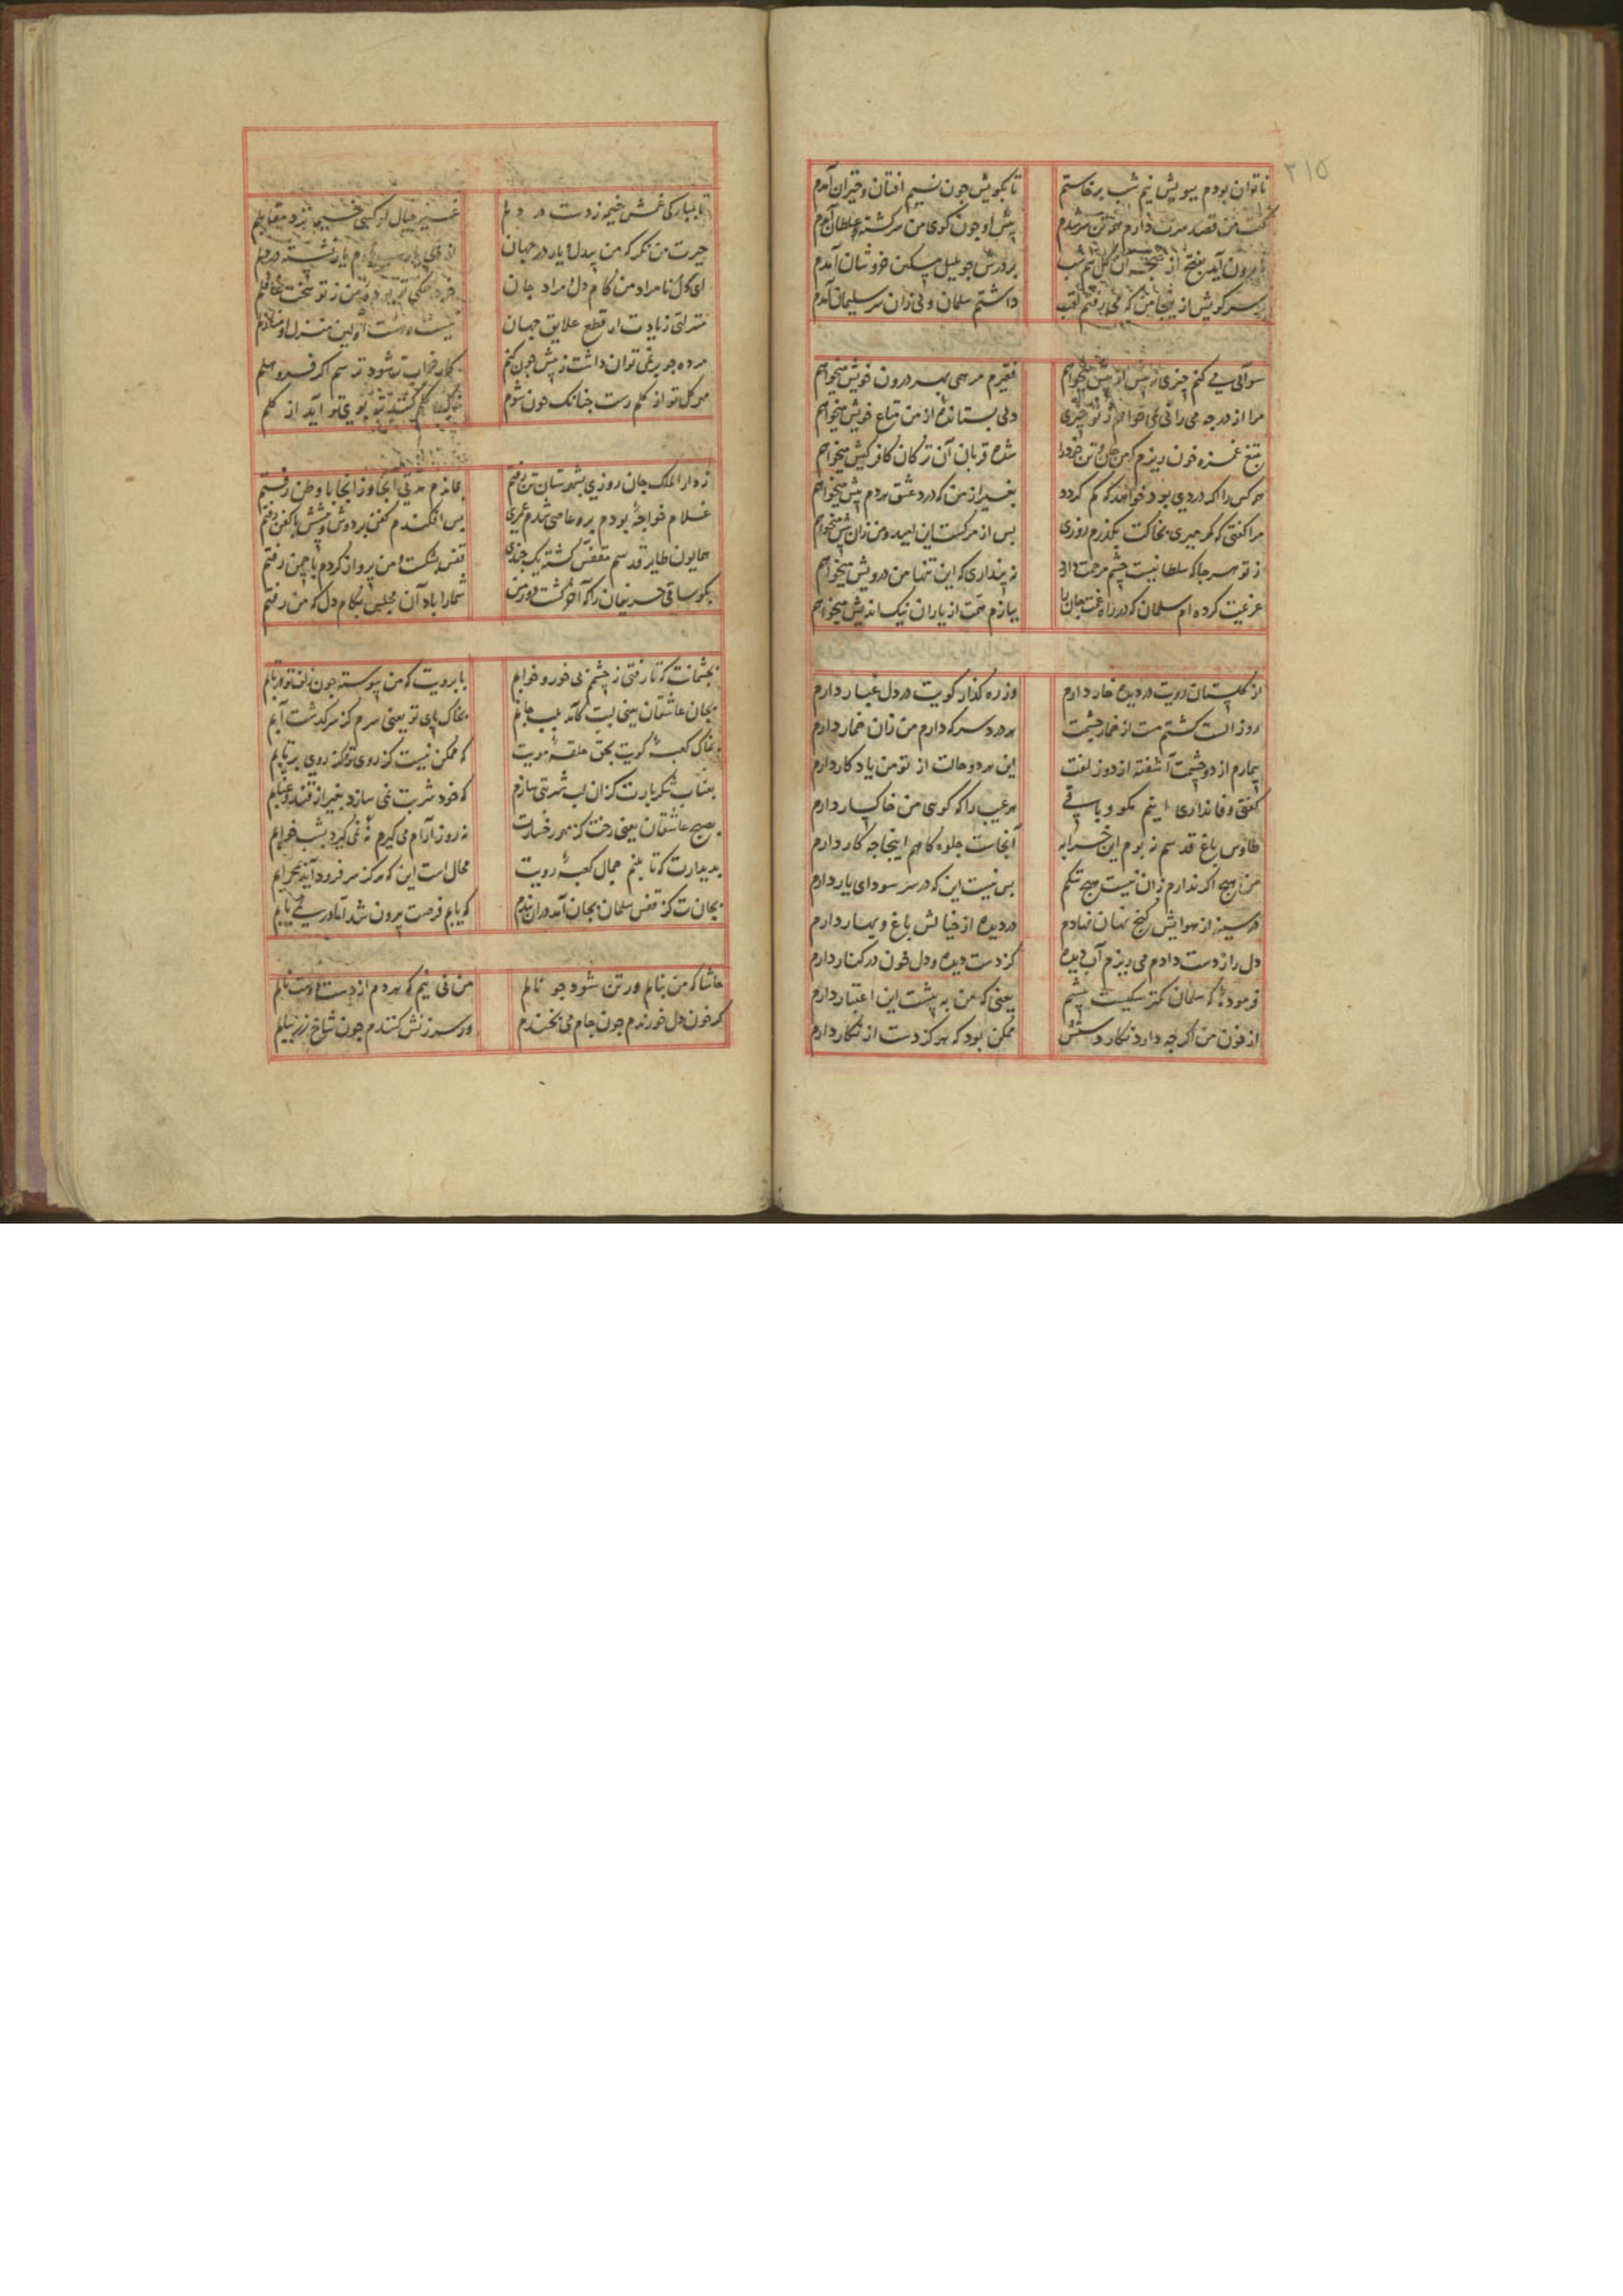 ۲۱۵
ناتوان بودم ببویش نیم شب برخاستم تا بکویش جون نسیم افتان و خیزان آمدم
کفت من قصد سرت دارم پیش او جون کوی من سرکشته و غلطان آمدم
برون آید از کل نیم شب بر درش جو بلبل مسکین خروشان آمدم
بر سر کویش از داشتم سلمان ولی زان سر سلیمان آمدم
سوآلی می کنم چیزی نه بیش از پیش میخواهم فقیرم مرهمی بهر درون خویش میخواهم
مرا از در جه می رانی نمی خواهم ز تو چیزی دلی بستانده از من متاع خویش میخواهم
بتیغ غمزه خون ریزم که من جان و تن خود را شده قربان آن ترکان کافر کیش میخواهم
هر کس را که دردی بود خواهد که کم کردد بغیر از من که درد عشق هر دم بیش میخواهم
مرا کفتی که کر میری بخاکت بکذرم روزی بس از مرکست این امید و من زان پیش میخواهم
ز تو هر جا که سلطانیست چشم مرحمت دارد نه پنداری که این تنها من درویش میخواهم
عزیمت کرده ام سلمان که در راه غمت جان را ببازم همت از یاران نیک اندیش میخواهم
از کلستان رویت در دیده خار دارم وز ره کذار کویت در دل غبار دارم
روز الست کشتم مست از خمار چشمت هر درد سر که دارم من زان خمار دارم
بیمارم از دو چشمت آشفته از دو زلفت این هر دو حالت از تو من یادکار دارم
کفتی وفا نداری اینم مکو و باقی هر عیب را که کویی من خاکسار دارم
طاوس باغ قدسم نه بوم این خرابه آنجاست جلوه کاهم اینجا جه کار دارم
من هیچ اکر ندارم زان نیست هیچ ننکم بس نیست این که در سر سودای یار دارم
در سینه از هوایش کنج نهان نهادم در دیده از خیالش باغ و بهار دارم
دل را ز دست دادم می ریزم آب دیده کز دست دیده و دل خون در کنار دارم
فرمودهٔ که سلمان کمتر سکیست پیشم یعنی که من به پیشت این اعتبار دارم
از خون من اکر جه دارد نکار دستش ممکن بود که هرکز دست از نکار دارم
تا بمبارکی غمش خیمه زدست در دلم غیر خیال او کسی خیمه نزد مقابلم
حیرت من نکر که من بیدل و یار در جهان یار نشسته در دلم
ای کل نامراد من کام دل و مراد جان
منزلتی زیادت از قطع علایق جهان نیست و هست اولین منزل او منازلم
مرده جو بر نمی توان داشت ز پیش جون کنم کار خراب تر شود ترسم اکر فرو هلم
مهر کل تو از کلم رست جنانک جون شوم خاک بوی تو آید از کلم
ز دار الملک جان روزی بشهرستان تن رفتم بماندم مدتی آنجا و ز آنجا با وطن رفتم
غلام خواجهٔ بودم برو عاصی شدم عمری بس افکندم کفن بر دوش و پیشش با کفن رفتم
همایون طایر قدسم مقفس کشته یک جندی قفس بشکست و من پرواز کردم با چمن رفتم
بکو ساقی حریفان را که آخر کشت دور من شما را باد آن مجلس بکام دل که من رفتم
بجشمانت که تا رفتی ز چشمم بی خور و خوابم بابرویت که من پیوسته جون زلف تو در تابم
بجان عاشقان یعنی لبت کآمد بلب جانم بخاک پای تو یعنی سرم کز سر کذشت آبم
بخاک کعبهٔ کویت بحق حلقهٔ مویت که ممکن نیست کز روی تو هرکز روی برتابم
بعناب شکربارت کزان لب شربتی سازم که خود شربت نمی سازد بغیر از قند و عنابم
بصبح عاشقان یعنی رخت کز مهر رخسارت نه روز آرام می کیرم نه می کیرد بشب خوابم
بدیدارت که تا بینم جمال کعبهٔ رویت محال است این که هرکز سر فرود آید بمحرابم
بجانت کز قفس سلمان بجان آمد دران بندم که یابم فرصت بیرون شد اما در نمی یابم
حاشا که من بنالم ور تن شود جو نالم من نی نیم که هر دم از دست دوست نالم
کر خون دل خورندم جون جام می بخندم ور سرزنش کنندم جون شاخ زر ببالم